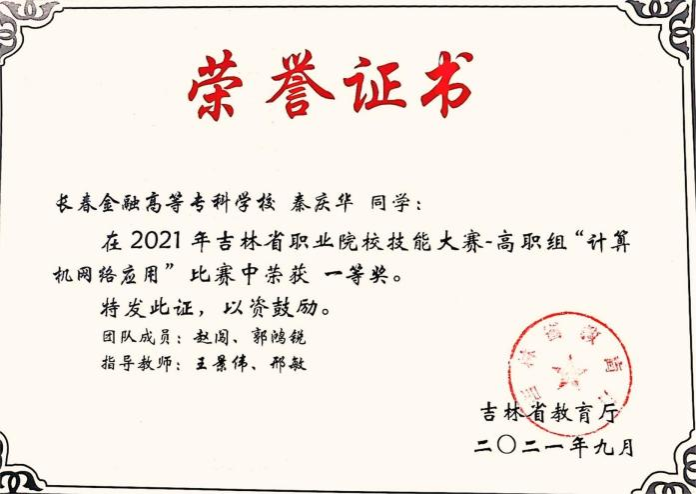 荣誉证书
长春金融高等专科学校 秦庆华 同学：
在2021年吉林省职业院校技能大赛-高职组“计算
机网络应用”比赛中荣获 一等奖。
特发此证，以资鼓励。
团队成员：赵闯、郭鸿锐
指导教师：王景伟、邢敏
吉林省教育厅
吉林省教育厅
二〇二一年九月